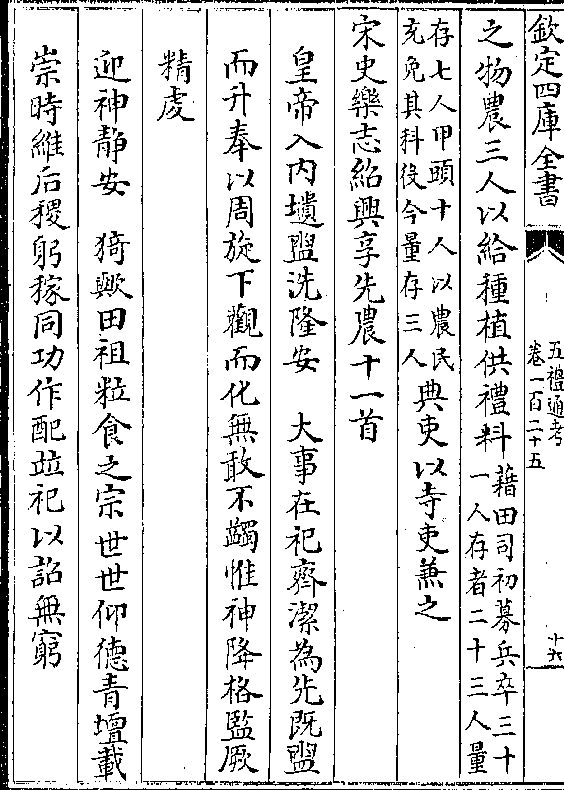 欽定四庫全書
五禮通考
卷一百二十五
十六
之物農三人以給種植供禮料
藉田司初募兵卒三十
一人存者二十三人量
存七人甲頭十人以農民
充免其科役今量存三人
典吏以寺吏兼之
宋史樂志紹興享先農十一首
皇帝入内壝盥洗隆安　大事在祀齊潔為先既盥
而升奉以周旋下觀而化無敢不蠲惟神降格監厥
精虔
迎神静安　猗歟田祖粒食之宗世世仰德青壇載
崇時維后稷躬稼同功作配並祀以詔無窮